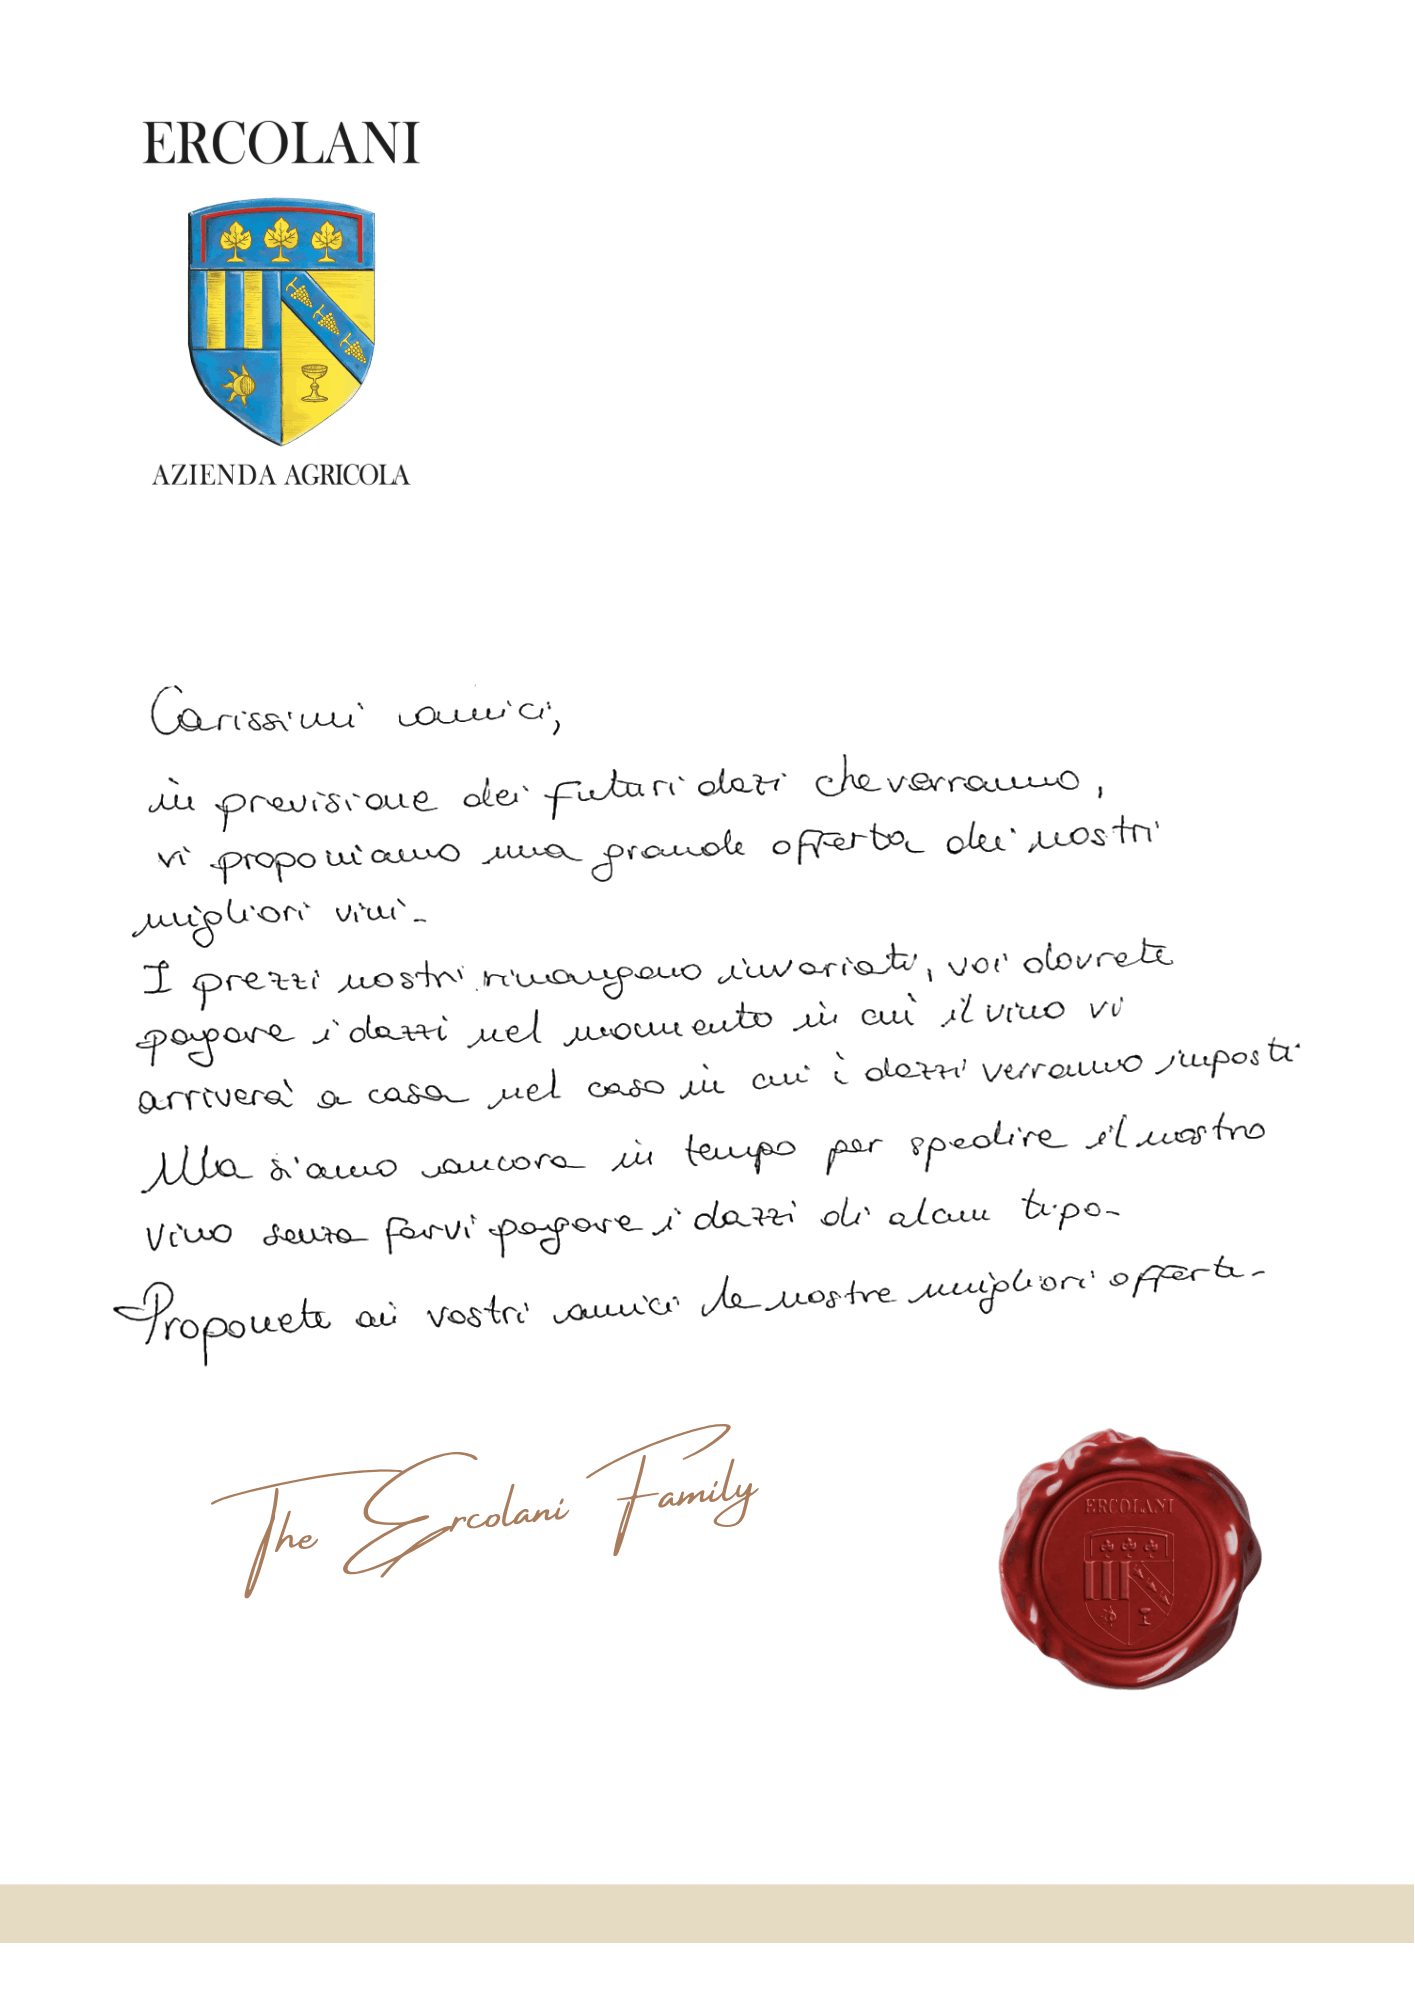 ERCOLANI
AZIENDA AGRICOLA
Carissimi amici,
in previsione dei futuri dazi che verranno,
vi proponiamo una grande offerta dei nostri
migliori vini.
I prezzi nostri rimangono invariati, voi dovrete
pagare i dazzi nel momento in cui il vino vi
arriverà a casa nel caso in cui i dazzi verranno imposti
Ma siamo ancora in tempo per spedire il nostro
vino senza farvi pagare i dazzi di alcun tipo.
Proponete ai vostri amici le nostre migliori offerte.
The Ercolani Family
ERCOLANI